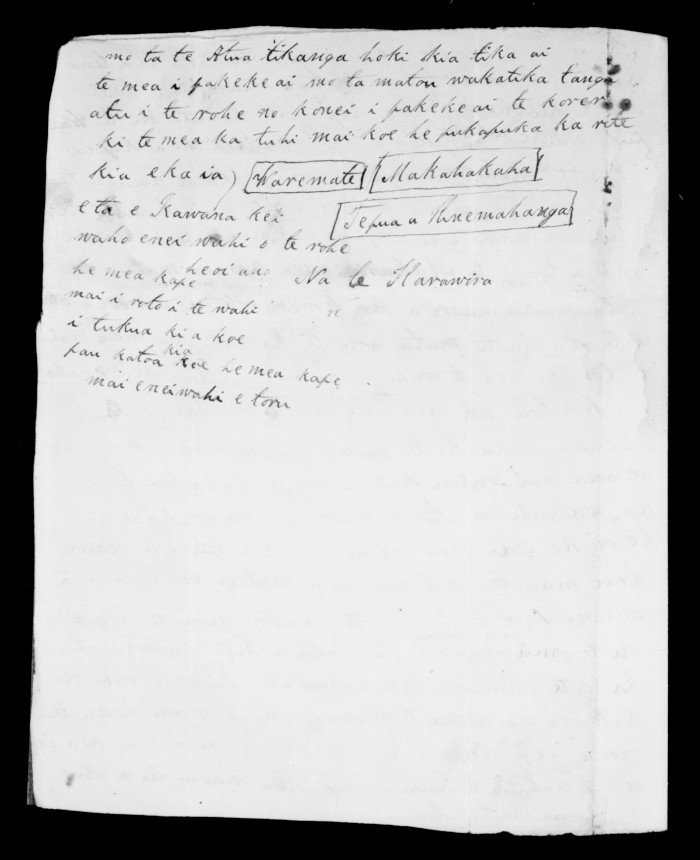 mo ta te Atua tikanga hoki kia tika ai
te mea i pakeke ai mo ta matou wakatika tanga
atu i te rohe no konei i pakeke ai te korero
ki te mea ka tuhi mai koe he pukapuka ka rite
kia ekaia) Waremate Makahakaha
e ta e Kawana kei Tepua a Hinemahanga
waho enei wahi o te rohe
he mea kape heoi ano Na te Harawira
mai i roto i te wahi
i tukua kia koe
pau katoa kia koe he mea kape
mai enei wahi e toru